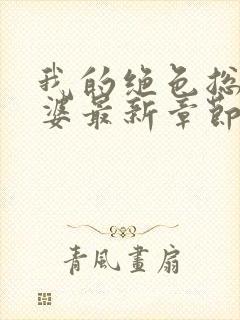 我的绝色总
婆最新章節
青風畫扇